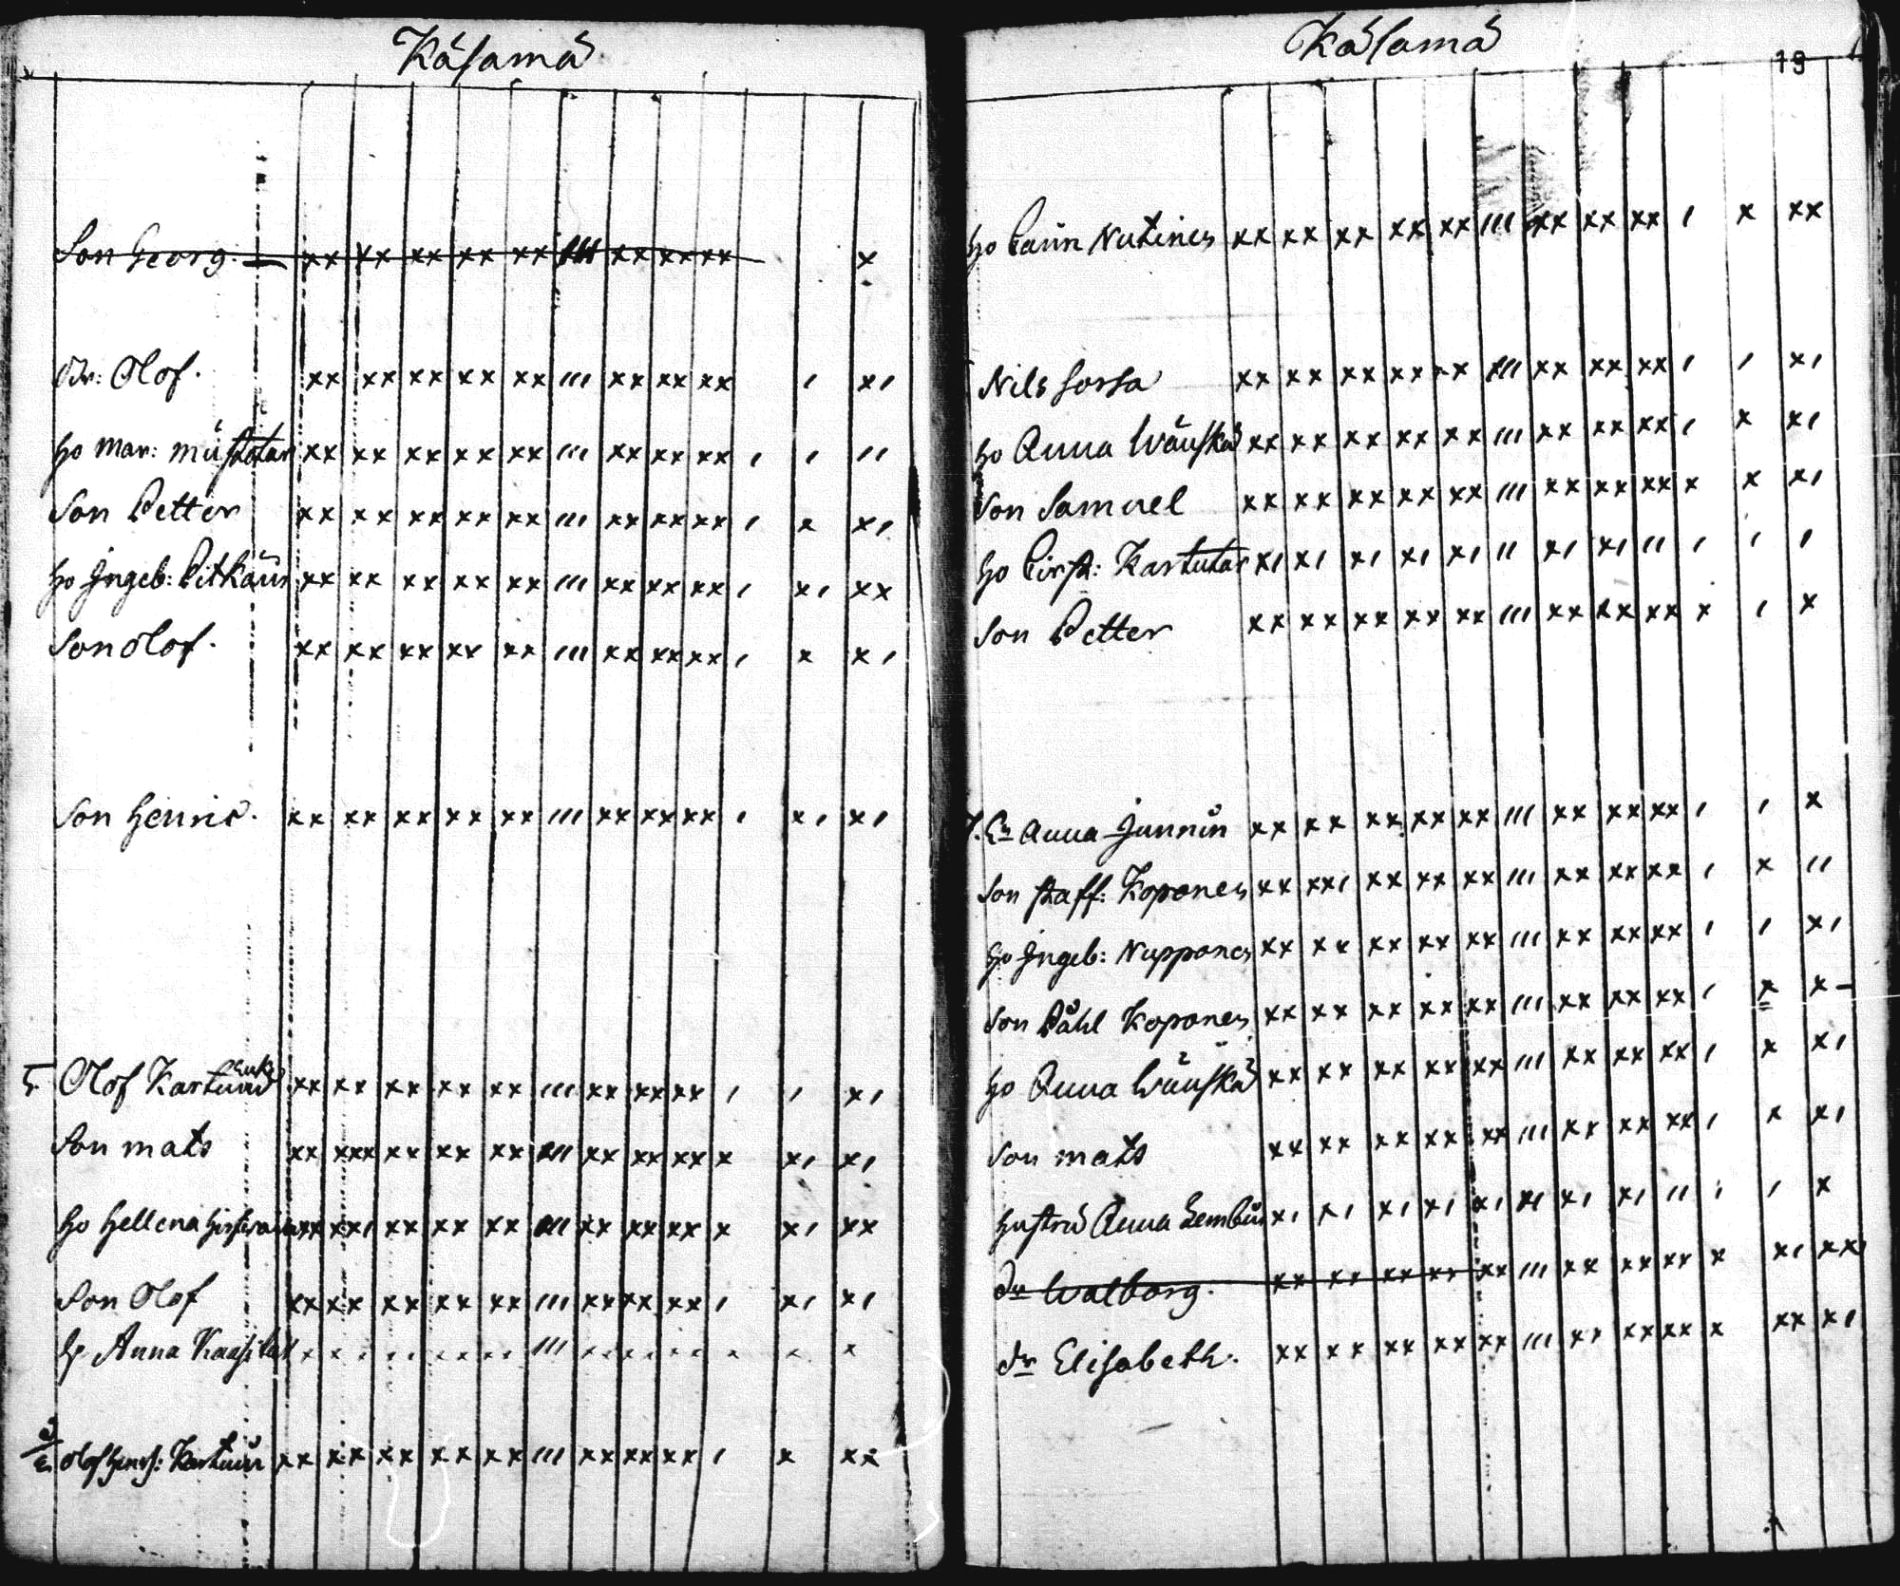 Kåsama
Son Georg. xx xx xx xx xx III xx xx xx x
Br: Olof. xx xx xx xx xx III xx xx xx I xI
ho Mar: Mustatar xx xx xx xx xx III xx xx xx I I II
Son Petter xx xx xx xx xx III xx xx xx I x xI
ho Ingeb: Pitkäin xx xx xx xx xx III xx xx xx I xI xx
Son Olof. xx xx xx xx xx III xx xx xx I x xI
Son Henric. xx xx xx xx xx III xx xx xx I xI xI
5 Olof Kartuin xx xx xx xx xx III xx xx xx I I xI
Son mats xx xxx xx xx xx III xx xx xx x xI xI
ho Hellena xx xxI xx xx xx III xx xx xx x xI xx
Son Olof xx xx xx xx xx III xx xx xx I xI xI
h Anna
Olof Henrs: Kartuin xx xx xx xx xx III xx xx xx I x xx
Kåsamå
19
ho Carin Nutines xx xx xx xx xx III xx xx xx I x xx
Nils Sorsa xx xx xx xx xx III xx xx xx I I xI
ho Anna Wänskä xx xx xx xx xx III xx xx xx I x xI
Son Samuel xx xx xx xx xx III xx xx xx x x xI
ho Kirst: Kartutar xI xI xI xI xI II xI xI II I I I
Son Petter xx xx xx xx xx III xx xx xx x I x
7. En Anna Junnin xx xx xx xx xx III xx xx xx I I x
Son Staff: Kopones xx xxI xx xx xx III xx xx xx I x II
ho Ingeb: Nuppones xx xx xx xx xx III xx xx xx I I xI
Son Påhl Kopones xx xx xx xx xx III xx xx xx I x x-
ho Anna Wänskä xx xx xx xx xx III xx xx xx I x xI
Son mats xx xx xx xx xx III xx xx xx I x xI
hustru Anna xI xI xI xI xI xI xI xI II I I x
dr Walborg. xx xx xx xx xx III xx xx xx x xI xx
dr Elisabeth. xx xx xx xx xx III xx xx xx x xx xI